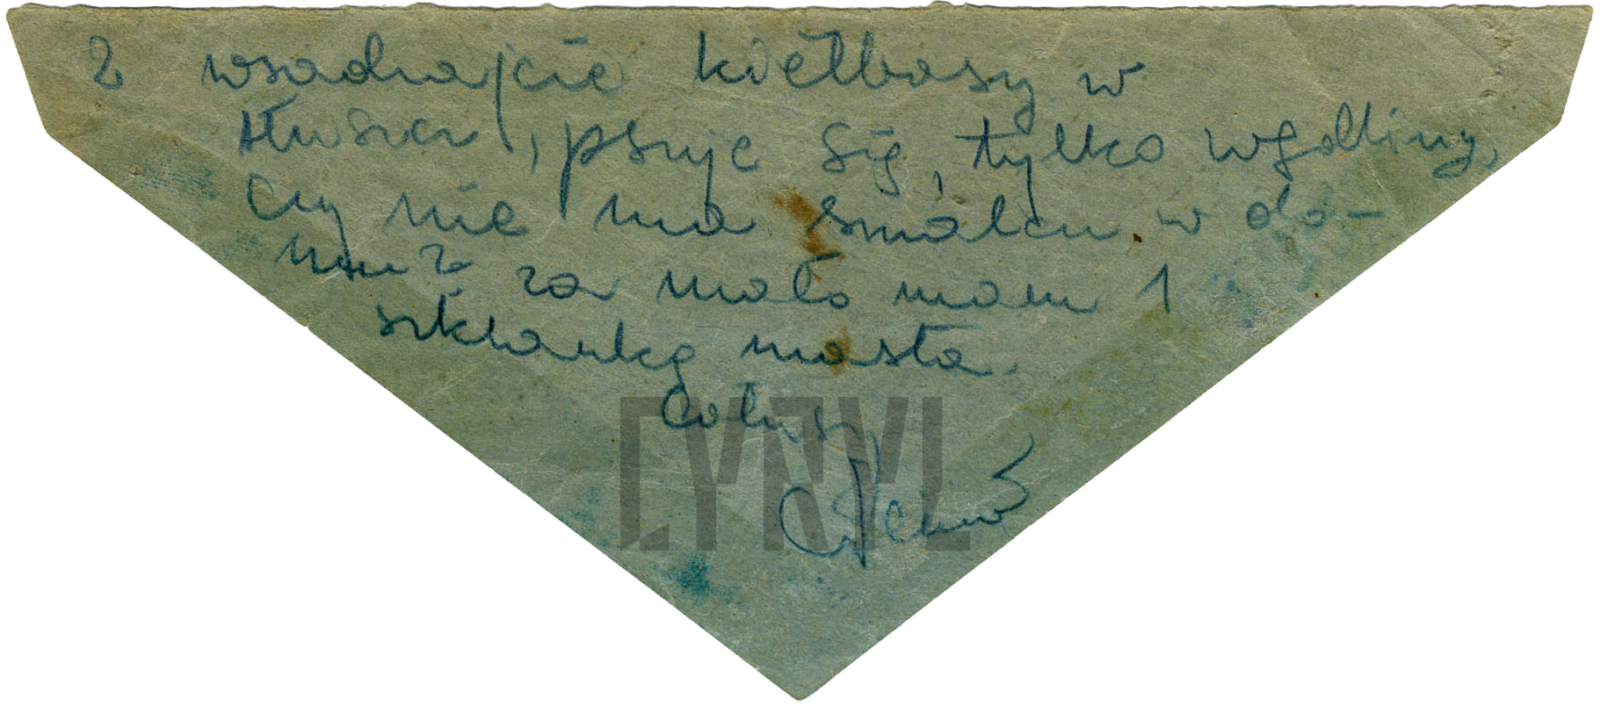 2 wsadzajcie kiełbasy w
tłuszcz, psuje się, tylko wędliny,
czy nie ma smalcu w do-
mu? za mało mam 1
szklankę masła.
Całusy
CYRYL